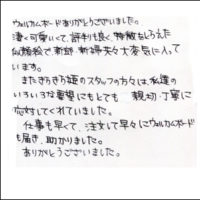 ウェルカムボードありがとうございました。
凄く可愛いくて、評判も良く、特徴をしらえた
似顔絵で新郎・新婦共々大変気に入って
います。
またきらきら堂のスタッフの方々は、私達の
いろいろな要望にもとても 親切・丁寧に
応対してくれていました。
仕事も早くて、注文して早々にウェルカムボード
も届き、助かりました。
ありがとうございました。